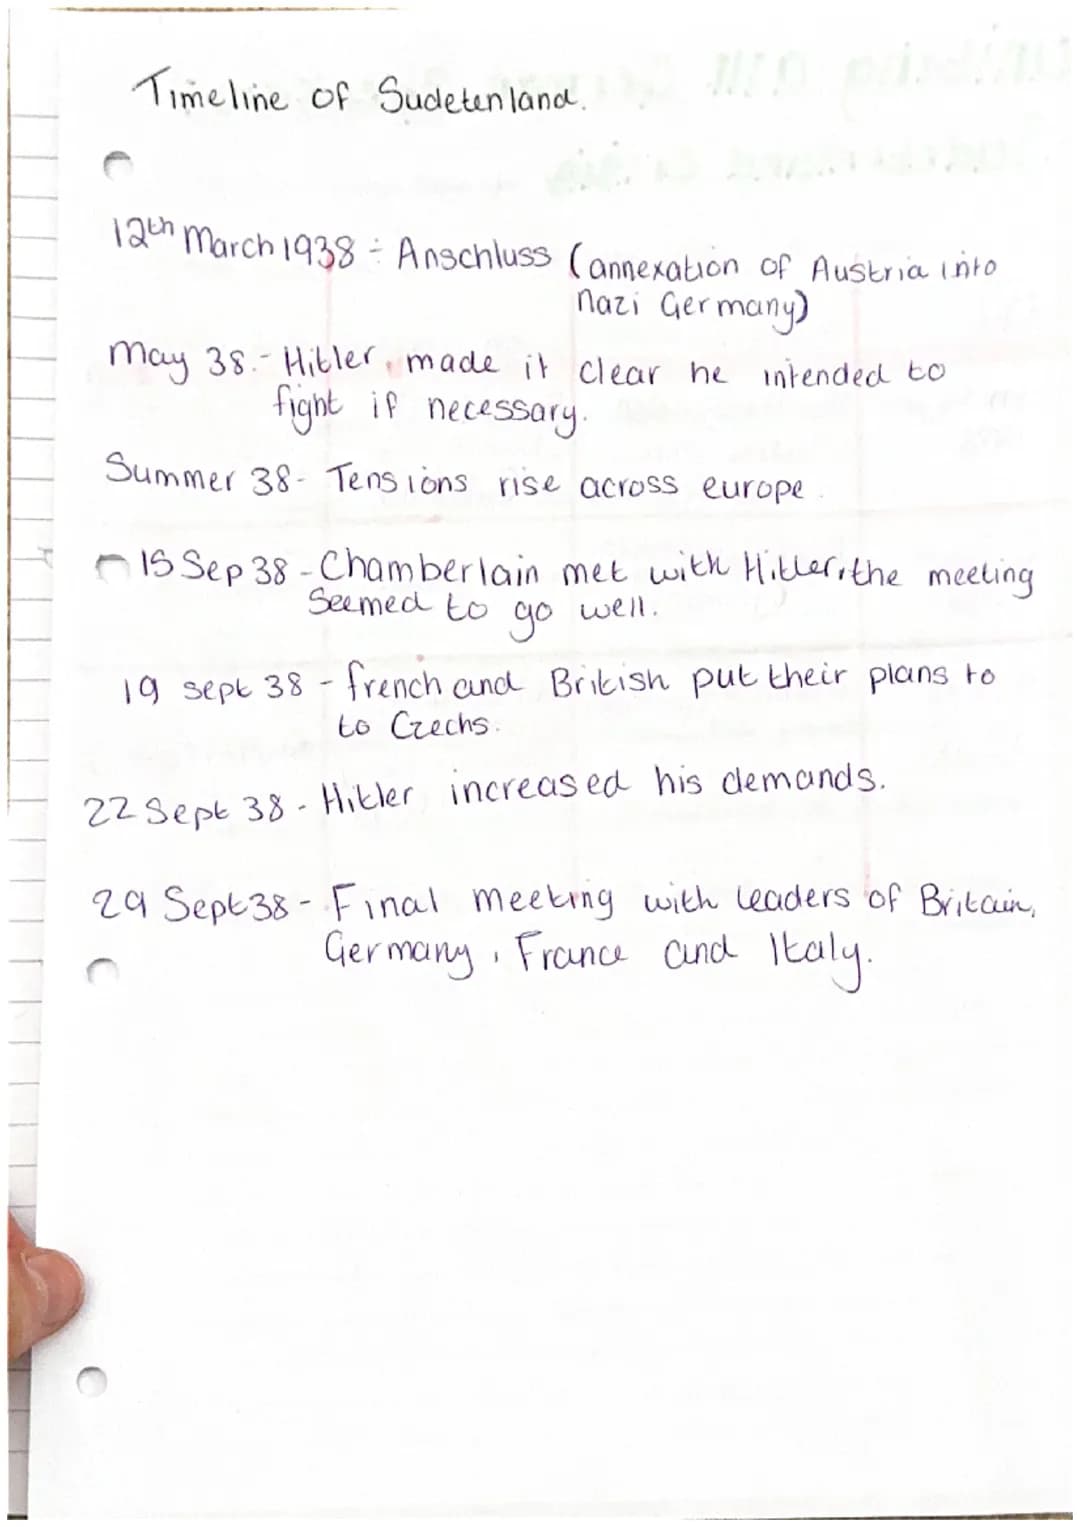 Timeline of Sudetenland.
12th March 1938 - Anschluss (annexation of Austria into
nazi Germany)
May 38 - Hitler made it clear he intended to
fight if necessary.
Summer 38 - Tensions rise across europe.
15 Sep 38 - Chamberlain met with Hitler, the meeting
Seemed to go well.
19 sept 38 - french and British put their plans to
to Czechs.
22 Sept 38 - Hitler increased his demands.
29 Sept 38 - Final meeting with leaders of Britain,
Germany, France and Italy.